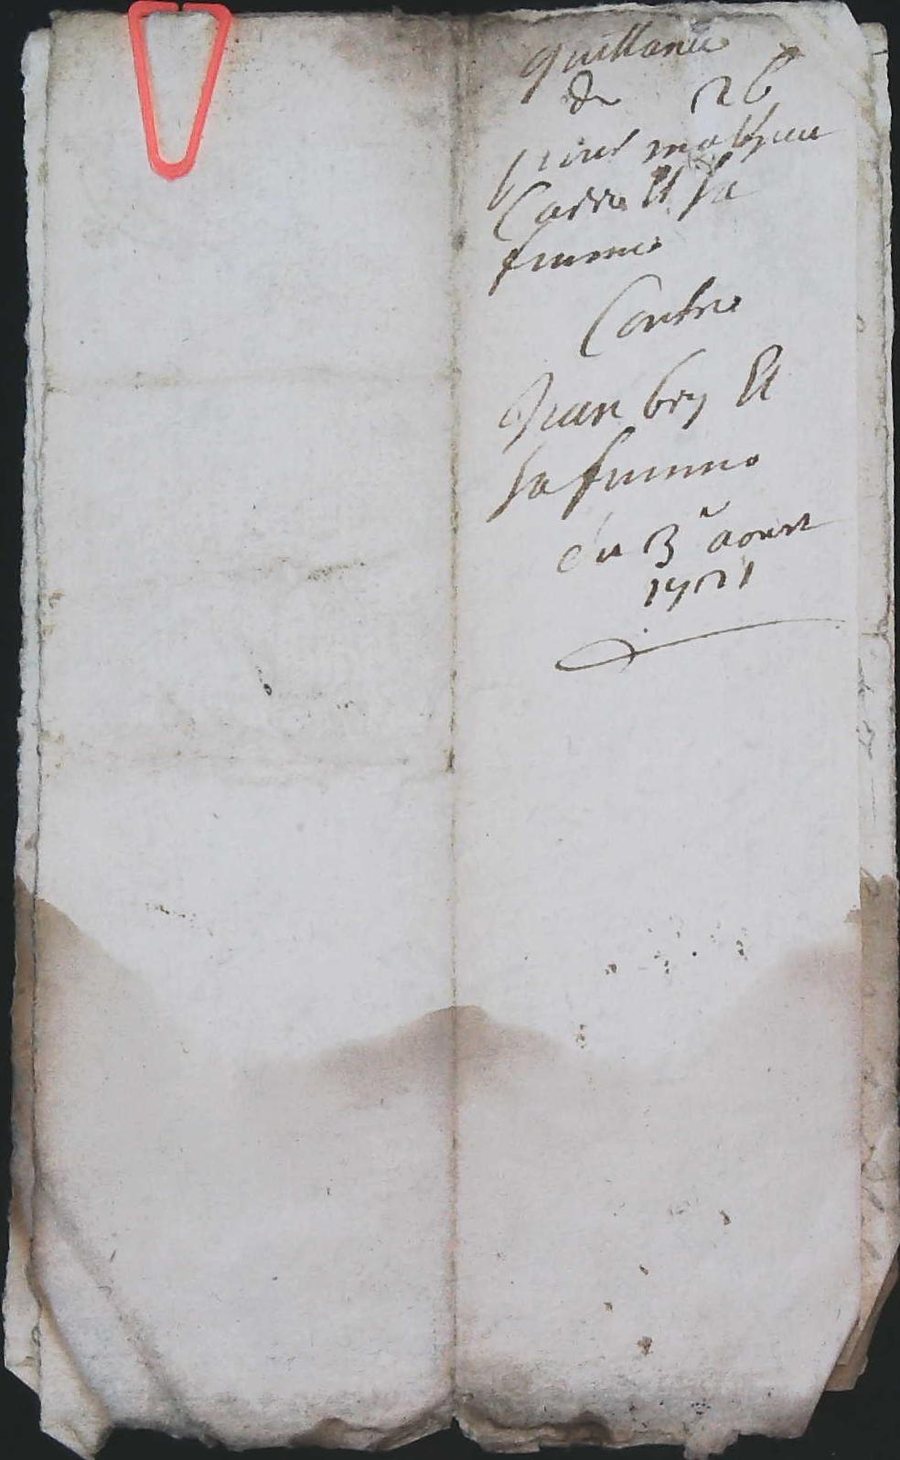 quittance
de 26
pour mathieu
Carre Et sa
femme
Contre
Jean bry Et
sa femme
du 3e aoust
1721